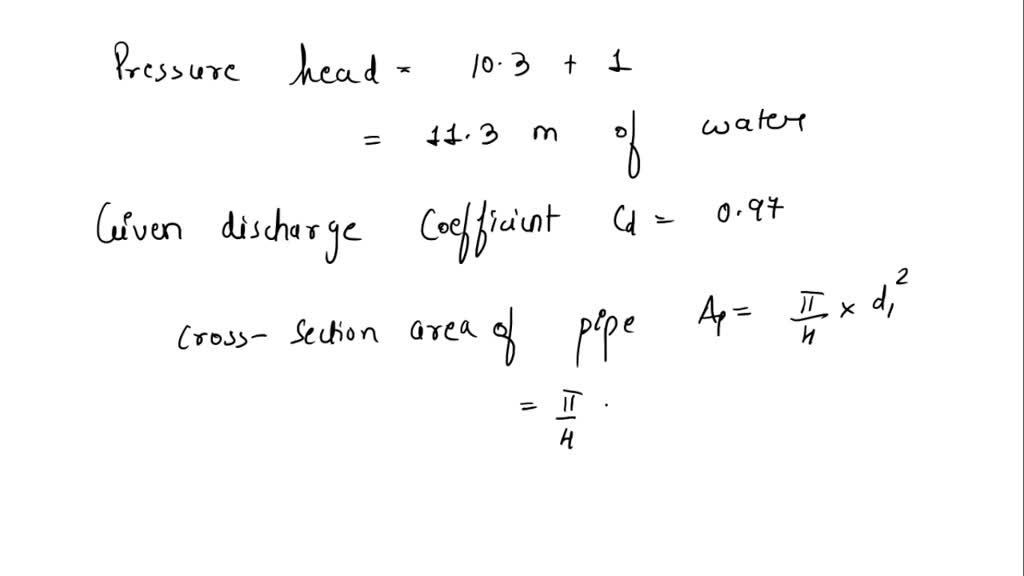 Pressure head = 10.3 + 1
= 11.3 m of water
Given discharge Coefficient Cd = 0.97
Cross-section area of pipe Ap = π/4 × d₁²
= π/4 .